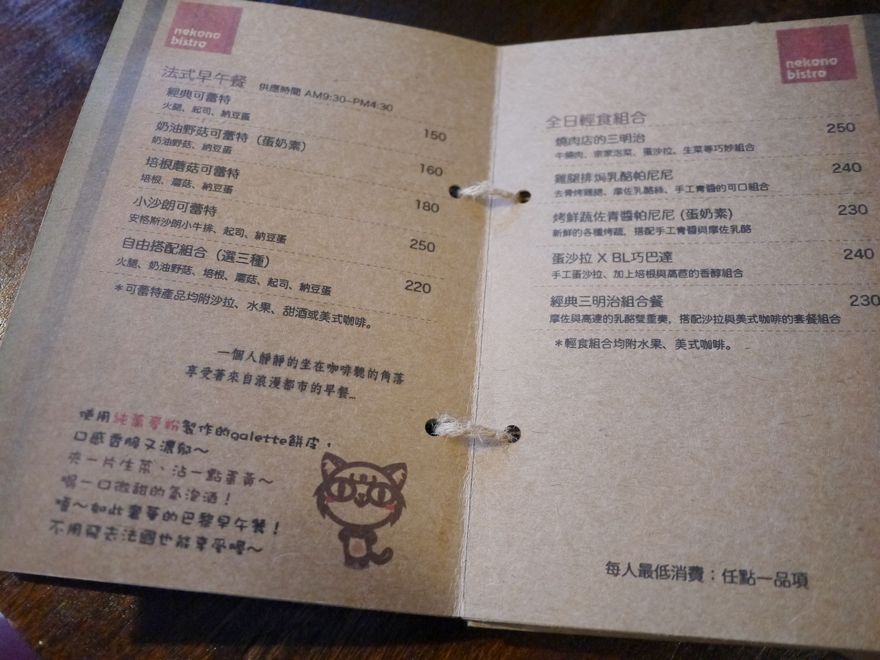 nekono
bistro
法式早午餐 供應時間 AM9:30-PM4:30
經典可蕾特
火腿、起司、納豆蛋 150
奶油野菇可蕾特（蛋奶素）
奶油野菇、納豆蛋 160
培根蘑菇可蕾特
培根、蘑菇、納豆蛋 180
小沙朗可蕾特
安格斯沙朗小牛排、起司、納豆蛋 250
自由搭配組合（選三種）
火腿、奶油野菇、培根、蘑菇、起司、納豆蛋 220
＊可蕾特產品均附沙拉、水果、甜酒或美式咖啡。
一個人靜靜的坐在咖啡聽的角落
享受著來自浪漫都市的早餐...
使用純蕎麥粉製作的galette餅皮，
口感香脆又濃郁～
夾一片生菜、沾一點蛋黃～
喝一口微甜的氣泡酒！
噫～如此奢華的巴黎早午餐！
不用飛去法國也能享受喔～
nekono
bistro
全日輕食組合
燒肉店的三明治 250
牛燒肉、宗家泡菜、蛋沙拉、生菜等巧妙組合
雞腿排焗乳酪帕尼尼 240
去骨烤雞腿、摩佐乳酪絲、手工青醬的可口組合
烤鮮蔬佐青醬帕尼尼 (蛋奶素) 230
新鮮的各種烤蔬、搭配手工青醬與摩佐乳酪
蛋沙拉 X BL巧巴達 240
手工蛋沙拉、加上培根與萵苣的香醇組合
經典三明治組合餐 230
摩佐與高達的乳酪雙重奏，搭配沙拉與美式咖啡的套餐組合
＊輕食組合均附水果、美式咖啡。
每人最低消費：任點一品項